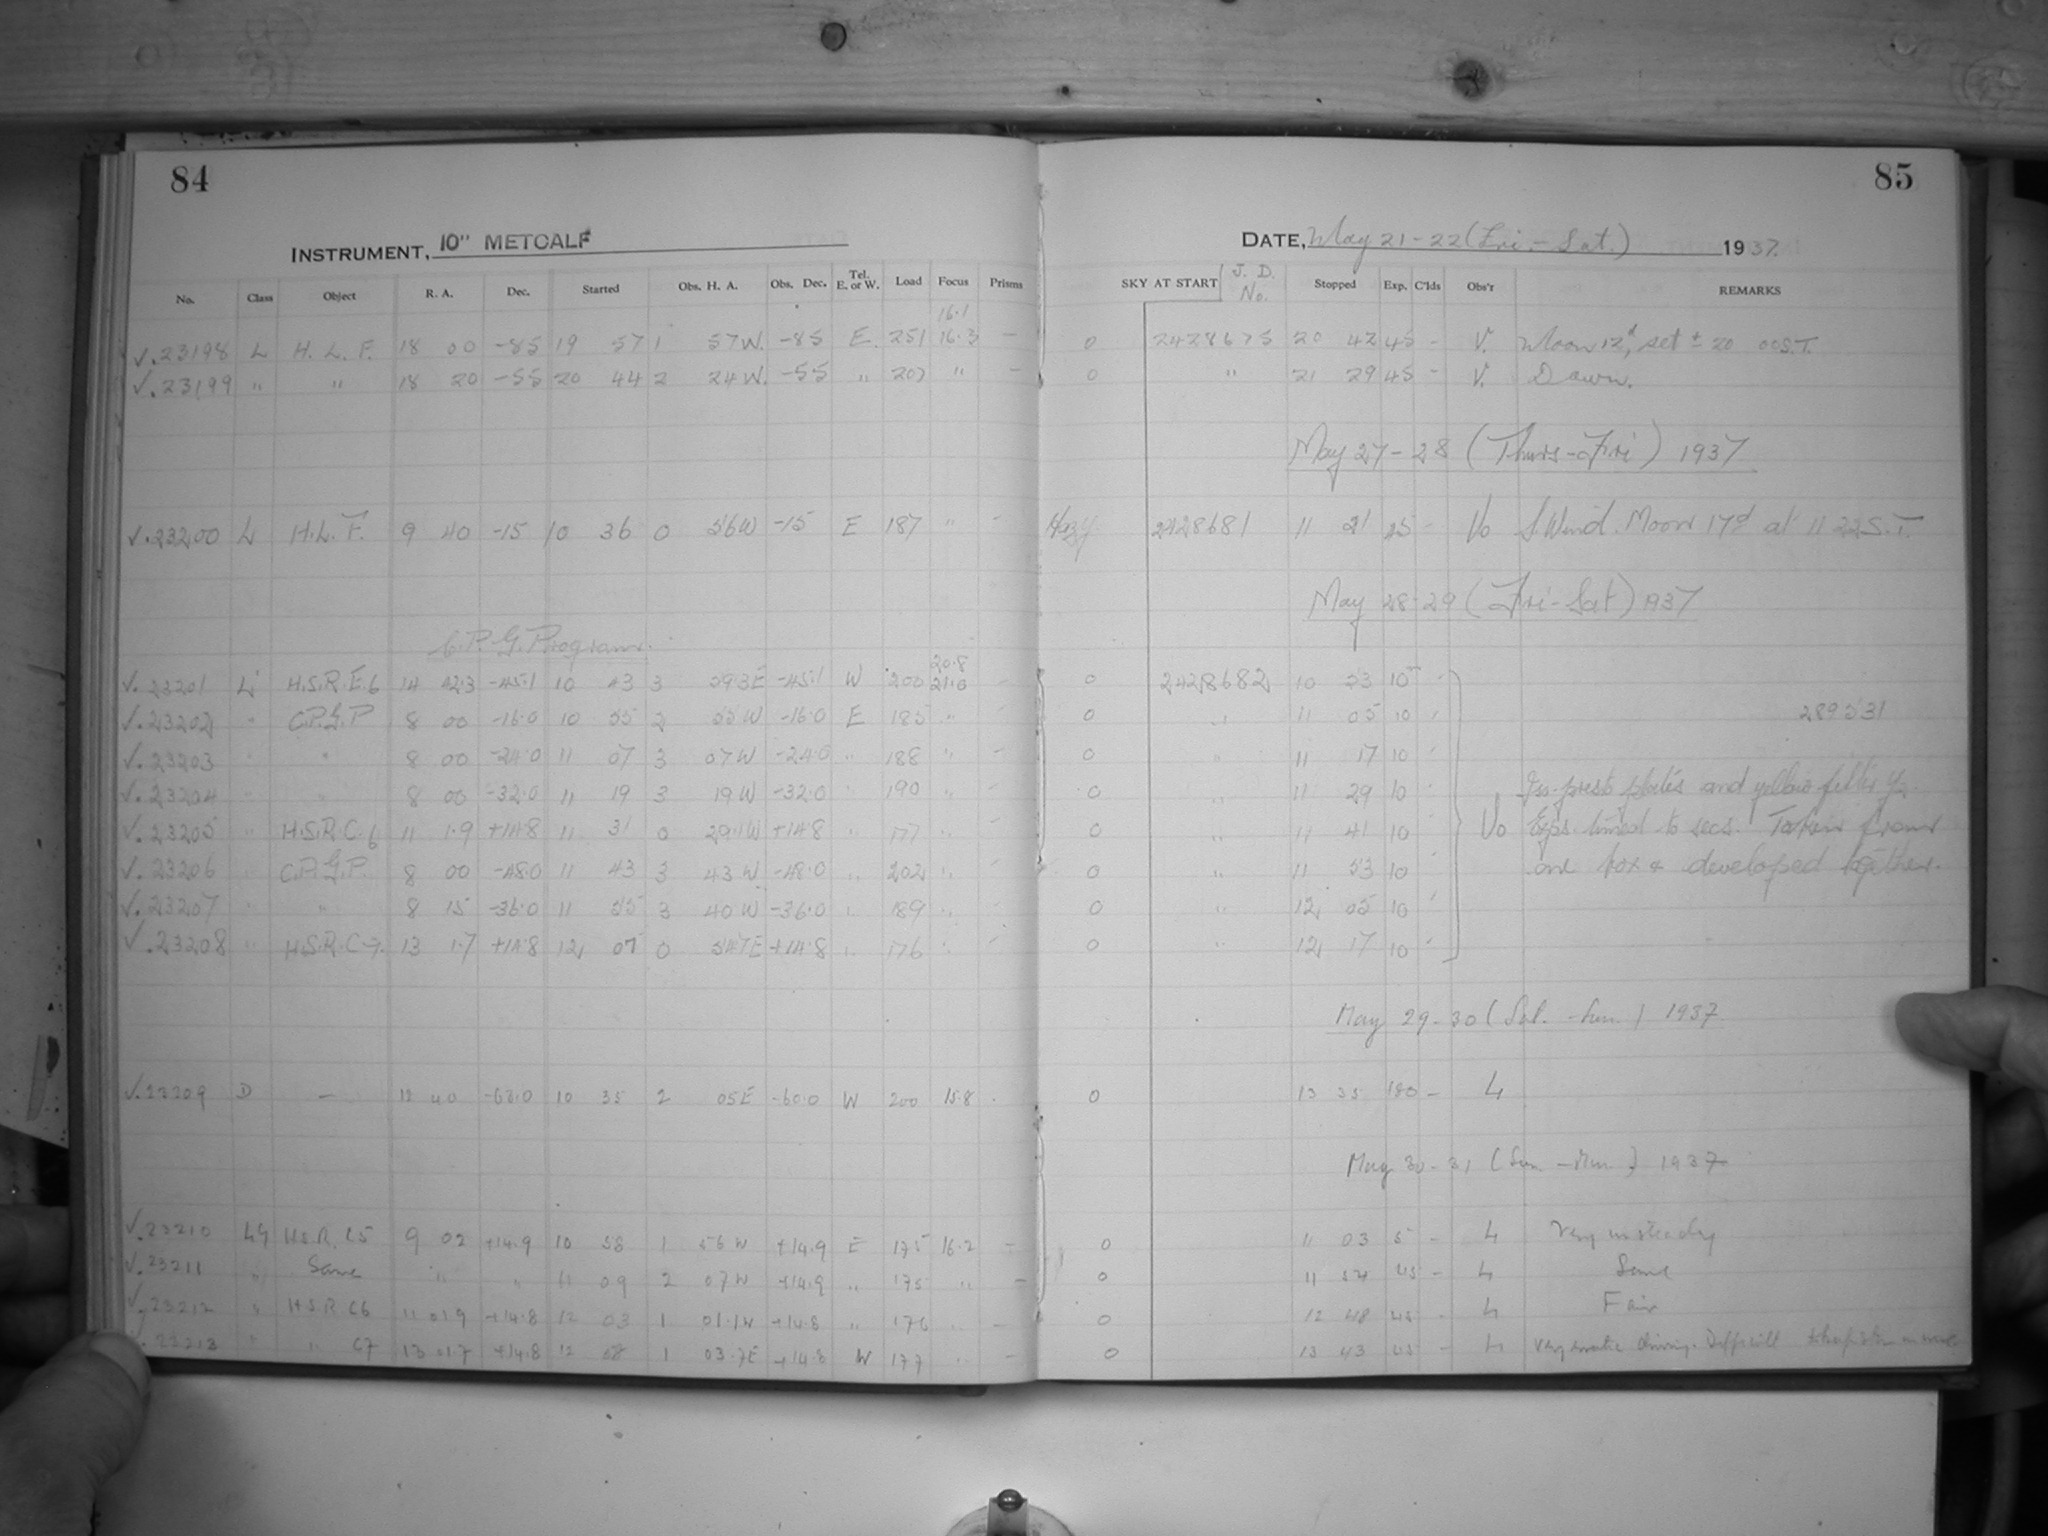 84
INSTRUMENT, 10" METCALF
No. Class Object R. A. Dec. Started Obs. H. A. Obs. Dec. Tel. E. or W. Load Focus Prisms
16.1
√.23198 L H. L. F. 18 00 -85 19 57 1 57W. -85 E. 251 16.3 -
√.23199 " " 18 20 -55 20 44 2 24W. -55 " 207 " -
√.23200 L H.L.F. 9 40 -15 10 36 0 56W -15 E 187 " -
C.P.G. Program.
20.8
√.23201 L H.S.R.E.6 14 42.3 -45.1 10 43 3 59.3E -45.1 W 200 21.0 -
√.23202 " C.P.G.P 8 00 -16.0 10 55 2 55W -16.0 E 185 " -
√.23203 " " 8 00 -24.0 11 07 3 07W -24.0 " 188 " -
√.23204 " " 8 00 -32.0 11 19 3 19W -32.0 " 190 " -
√.23205 " H.S.R.C.6 11 1.9 +14.8 11 31 0 29.1W +14.8 " 177 " -
√.23206 " C.P.G.P. 8 00 -48.0 11 43 3 43W -48.0 " 202 " -
√.23207 " " 8 15 -36.0 11 55 3 40W -36.0 " 189 " -
√.23208 " H.S.R.C.7. 13 1.7 +14.8 12 07 0 54.7E +14.8 " 176 " -
√.23209 D - 12 40 -60.0 10 35 2 05E -60.0 W 200 15.8 -
√.23210 LG H.S.R. C5 9 02 +14.9 10 58 1 56W +14.9 E 175 16.2 -
√.23211 " Same " " 11 09 2 07W +14.9 " 175 " -
√.23212 " H.S.R. C6 11 01.9 +14.8 12 03 1 01.1W +14.8 " 176 " -
√.23213 " " C7 13 01.7 +14.8 12 58 1 03.7E +14.8 W 177 " -
85
DATE, May 21-22 (Fri.-Sat.) 1937.
SKY AT START J. D. No. Stopped Exp. C'lds Obs'r REMARKS
0 2428675 20 42 45 - V. Moon 12d, set ± 20 00S.T.
0 " 21 29 45 - V. Dawn.
May 27-28 (Thurs-Fri) 1937
Hazy 2428681 11 21 45 - Vo S. Wind. Moon 17d at 11 22S.T.
May 28-29 (Fri-Sat) 1937
0 2428682 10 53 10 -
0 " 11 05 10 - 289531
0 " 11 17 10 -
0 " 11 29 10 - plates and yellow filter
0 " 11 41 10 - Vo Exps. timed to secs. Taken from
0 " 11 53 10 one box & developed together.
0 " 12 05 10 -
0 " 12 17 10 -
May 29-30 (Sat. - Sun.) 1937
0 13 35 180 - L
May 30-31 (Sun. - Mon.) 1937
0 11 03 5 - L Very unsteady
0 11 54 45 - L Same
0 12 48 45 - L Fair
0 13 43 45 - L Very erratic driving. Difficult